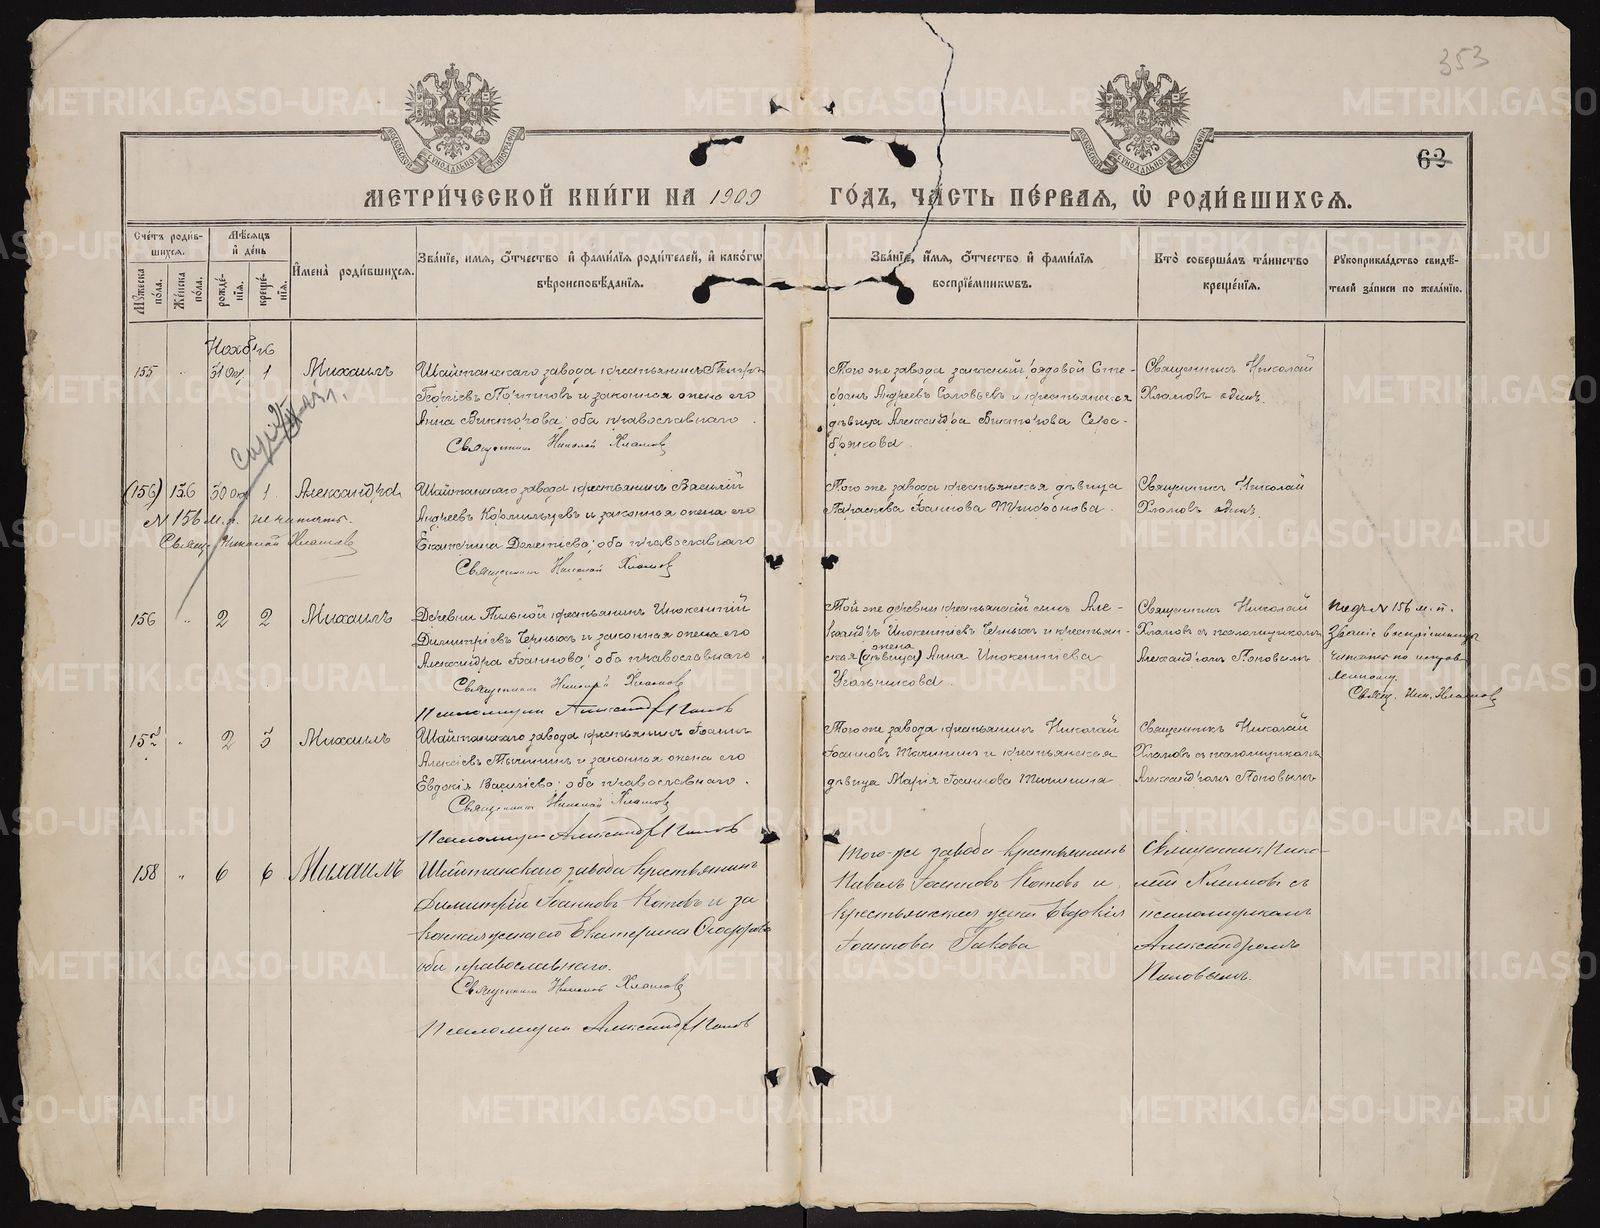 353
62
МОСКОВСКОЙ СѴНОДАЛЬНОЙ ТИПОГРАФІИ
МОСКОВСКОЙ СѴНОДАЛЬНОЙ ТИПОГРАФІИ
МЕТРИ́ЧЕСКОЙ КНИ́ГИ НА 1909 ГО́ДЪ, ЧА́СТЬ ПЕ́РВАЯ, Ѽ РОДИ́ВШИХСЯ.
Сче́тъ роди́в-
шихся.
Мѣ́сяцъ
и҆ де́нь
Мꙋ́жеска по́ла.
Же́нска по́ла.
рожде́-нїя.
креще́-нїя.
И҆мена̀ роди́вшихся.
Зва́нїе, и҆мя, ѻ҆́тчество и҆ фами́лїя роди́телей, и҆ како́гѡ
вѣроисповѣ́данїя.
Зва́нїе, и҆́мя, ѻ҆́тчество и҆ фами́лїя
воспрїе́мникѡвъ.
Кто̀ соверша́лъ та́инство
креще́нїя.
Рꙋкоприкла́дство свидѣ́-
телей за́писи по жела́нїю.
Ноябрь
155 " 31 Ок. 1 Михаилъ
Шайтанскаго завода крестьянинъ Петръ
Георгіевъ и законная жена его
Анна Викторова; оба православнаго.
Священникъ Николай Хламовъ
Того же завода запасный рядовой Сте-
фанъ Андреевъ Соловьевъ и крестьянская
дѣвица Александра Викторова
Священникъ Николай
Хламовъ одинъ.
(156) 156 30 Ок. 1 Александра
№ 156 м.п. не читать.
Свящ. Николай Хламовъ
Шайтанскаго завода крестьянинъ Василій
Андреевъ Кормильцевъ и законная жена его
Екатерина Дементіева; оба православнаго
Священникъ Николай Хламовъ
Того же завода крестьянская дѣвица
Параскева Іоаннова
Священникъ Николай
Хламовъ одинъ.
156 " 2 2 Михаилъ
Деревни крестьянинъ Инокентій
Димитріевъ Черныхъ и законная жена его
Александра Іоаннова; оба православнаго.
Священникъ Николай Хламовъ
Псаломщикъ Александръ Поповъ
Той же деревни крестьянскій сынъ Але-
ксандръ Инокентіевъ Черныхъ и крестьян-
жена
ская (дѣвица) Анна Инокентіева
Угольникова.
Священникъ Николай
Хламовъ съ псаломщикомъ
Александромъ Поповымъ
Подъ № 156 м. п.
Званіе воспріемницы
читать по исправ-
ленному.
Свящ. Ник. Хламовъ
157 " 2 3 Михаилъ
Шайтанскаго завода крестьянинъ Іоаннъ
Алексіевъ и законная жена его
Евдокія Василіева; оба православнаго.
Священникъ Николай Хламовъ
Псаломщикъ Александръ Поповъ
Того же завода крестьянинъ Николай
Іоанновъ и крестьянская
дѣвица Марія Іоаннова
Священникъ Николай
Хламовъ съ псаломщикомъ
Александромъ Поповымъ
158 " 6 6 Михаилъ
Шайтанскаго завода крестьянинъ
Димитрій Іоанновъ Котовъ и за
конная жена его Екатерина Ѳеодорова
оба православнаго.
Священникъ Николай Хламовъ
Псаломщикъ Александръ Поповъ
Того-же завода крестьянинъ
Павелъ Іоанновъ Котовъ и
крестьянская жена Евдокія
Іоаннова
Священникъ Нико-
лай Хламовъ съ
псаломщикомъ
Александромъ
Поповымъ.
METRIKI.GASO-URAL.RU